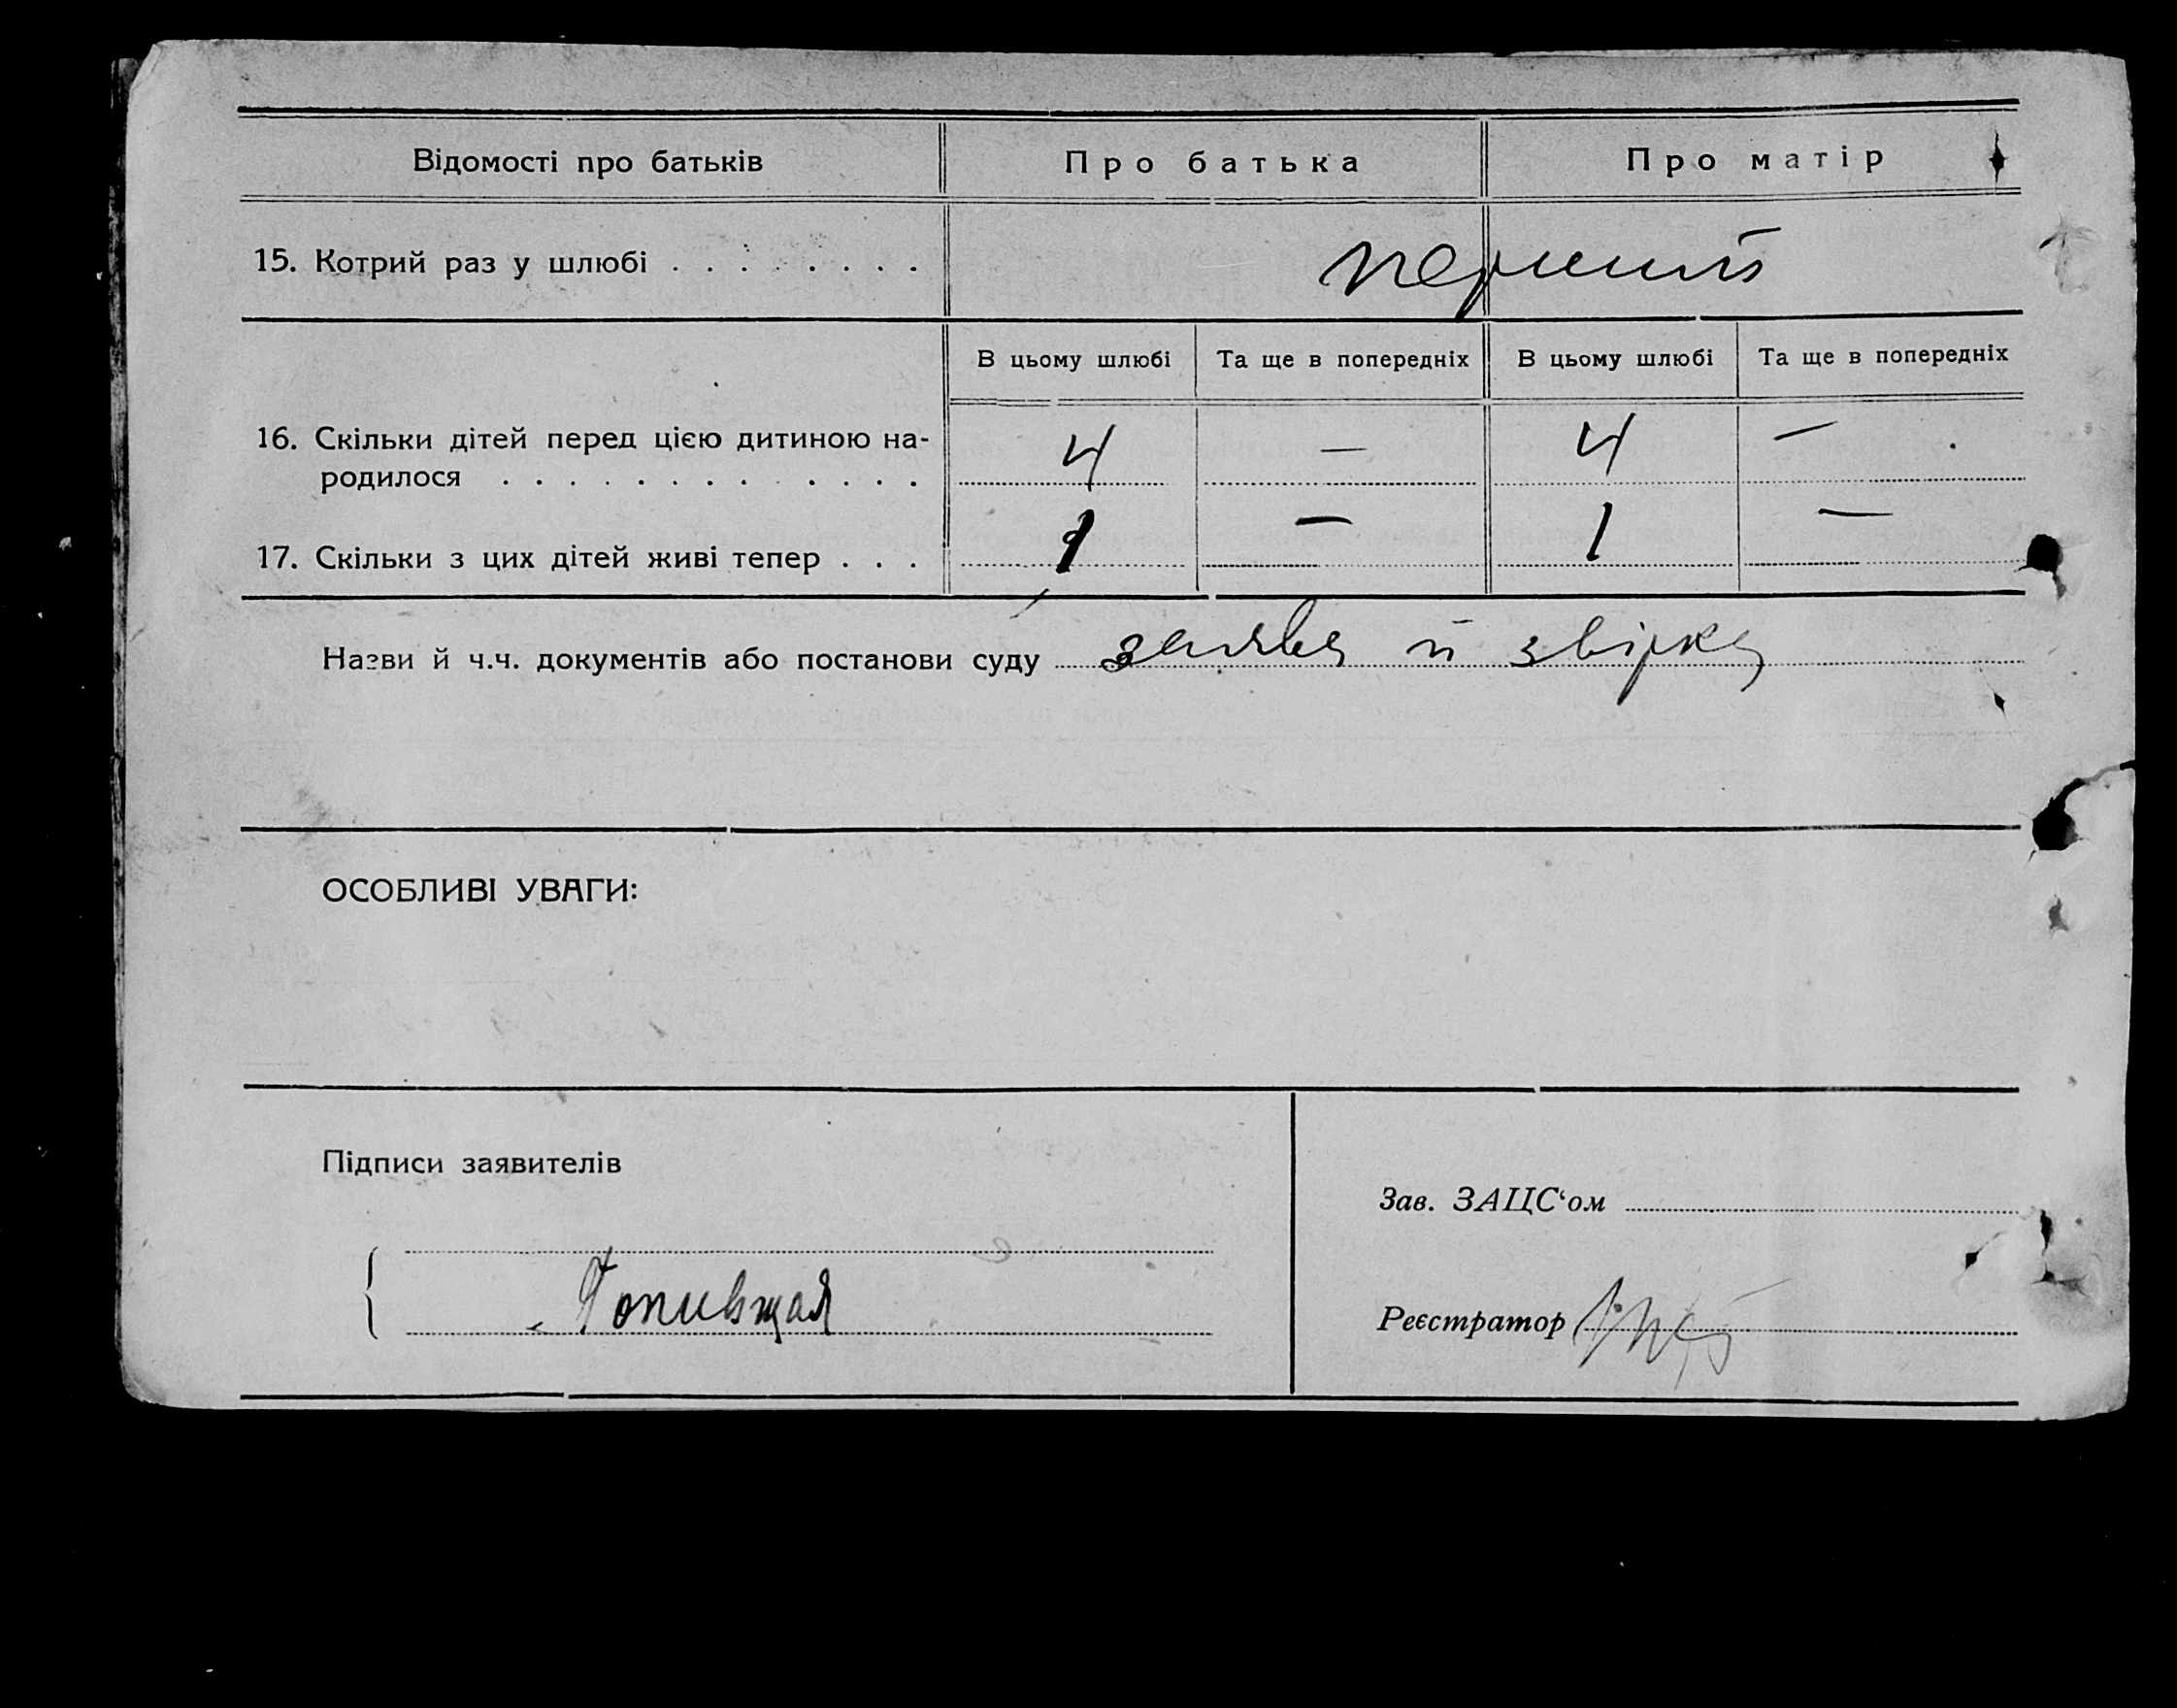 Відомості про батьків
Про батька
Про матір
15. Котрий раз у шлюбі . . . . . . . .
перший
В цьому шлюбі
Та ще в попередніх
В цьому шлюбі
Та ще в попередніх
16. Скільки дітей перед цією дитиною на-
родилося . . . . . . . . . . . . .
4 — 4 —
17. Скільки з цих дітей живі тепер . . .
1 — 1 —
Назви й ч.ч. документів або постанови суду заява й звірка
ОСОБЛИВІ УВАГИ:
Підписи заявителів
Зав. ЗАЦС‘ом
Реєстратор